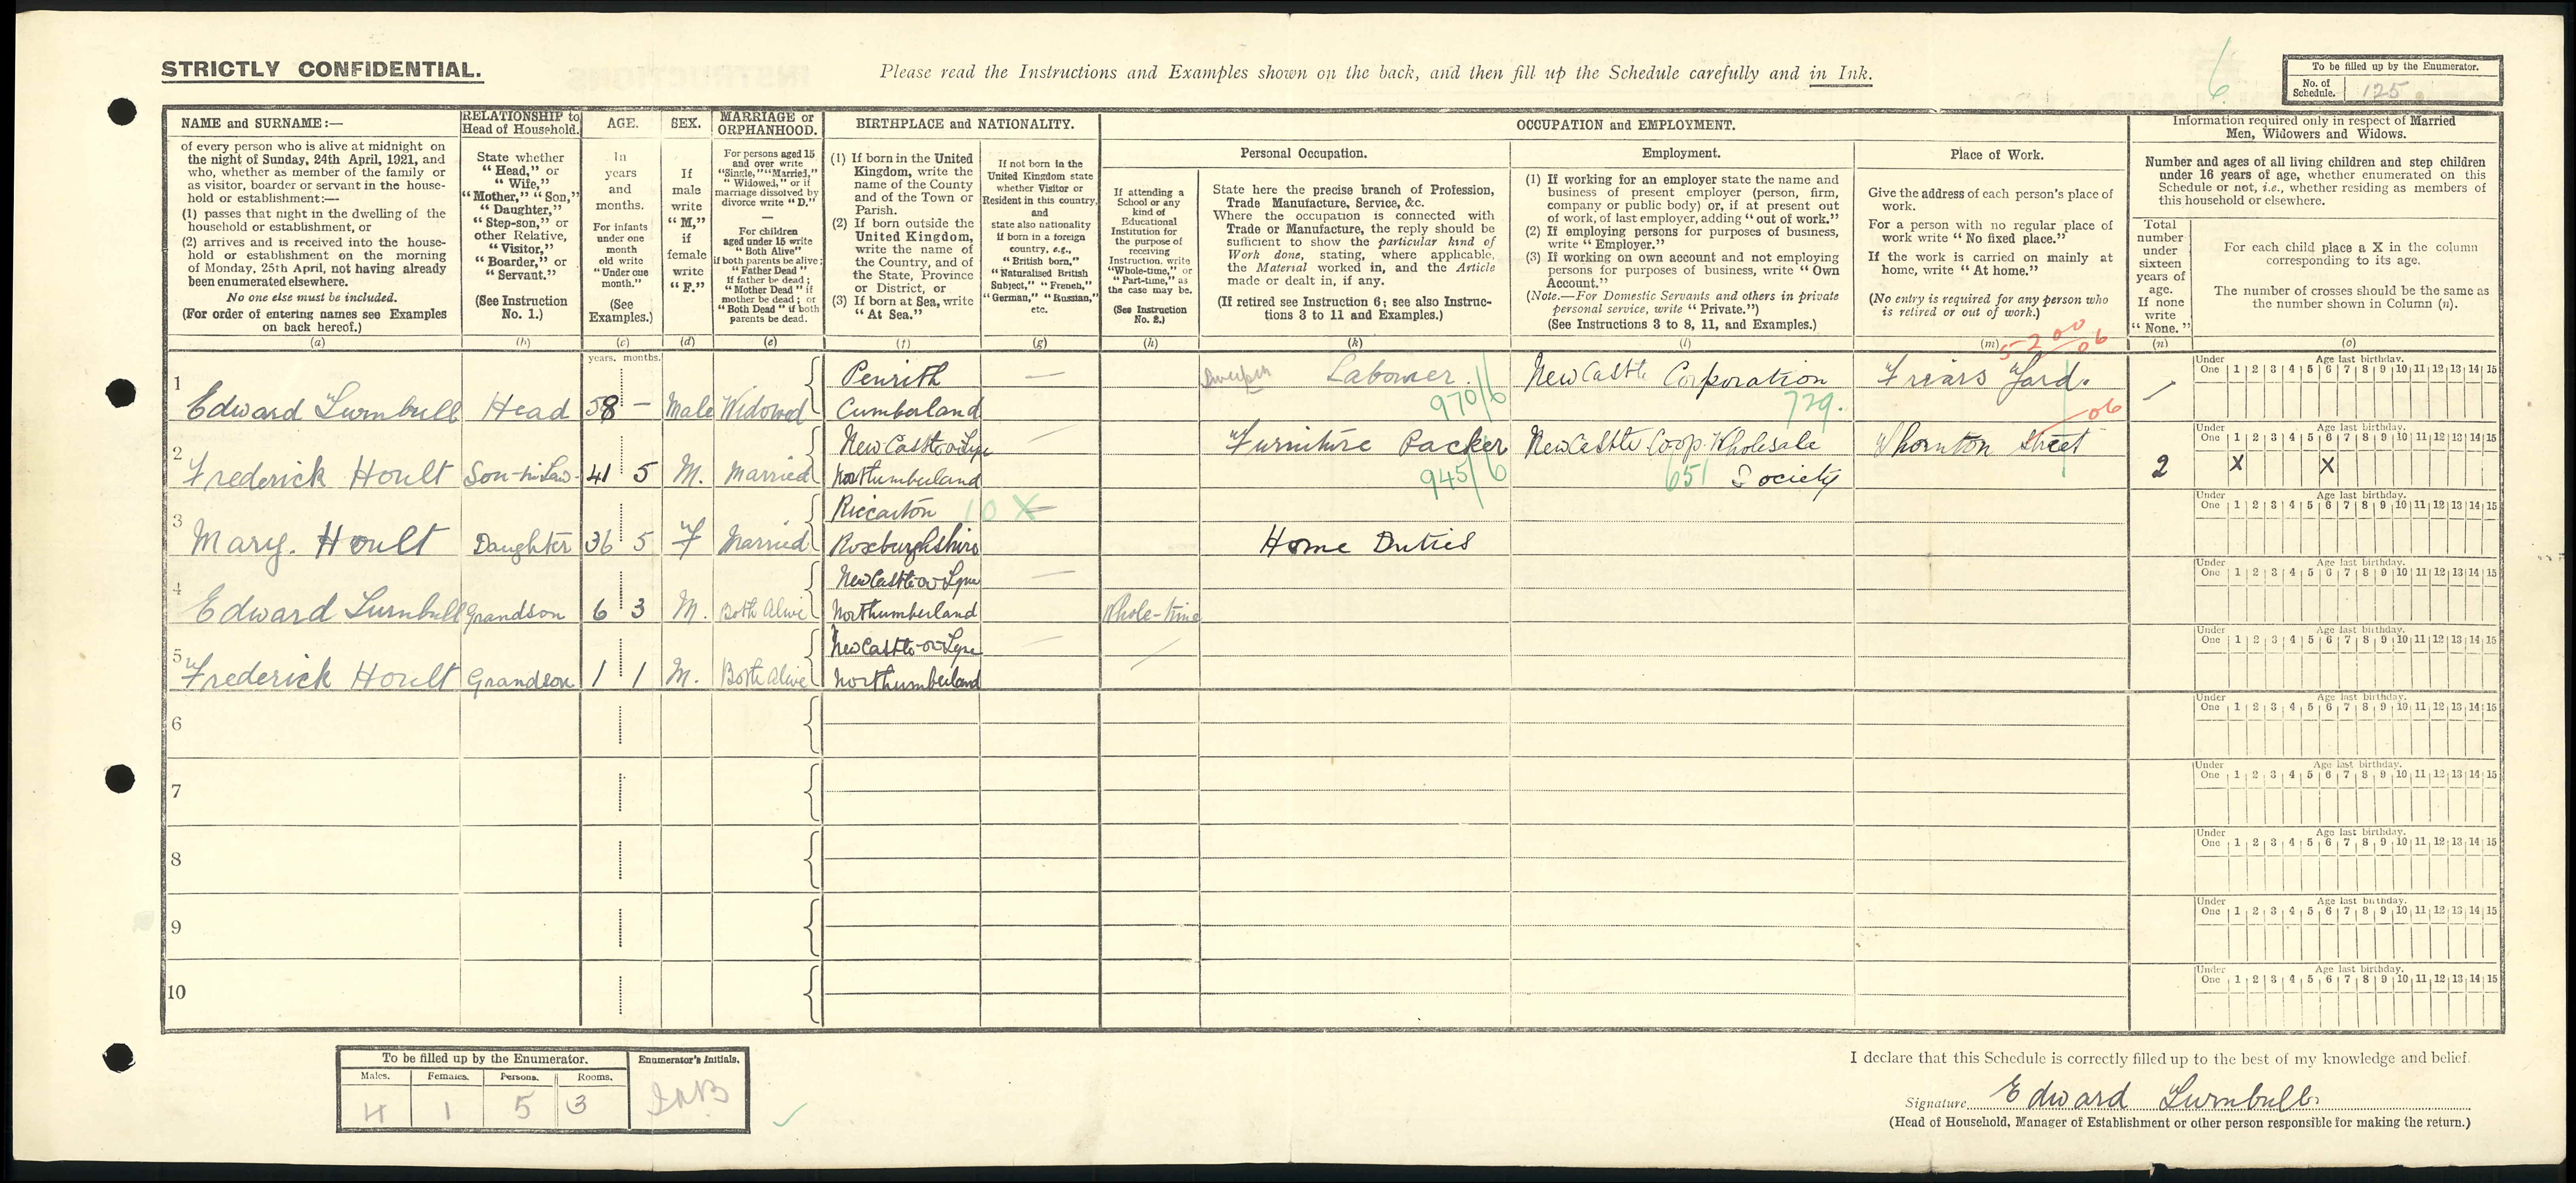 STRICTLY CONFIDENTIAL.
Please read the Instructions and Examples shown on the back, and then fill up the Schedule carefully and in Ink.
6
To be filled up by the Enumerator.
No. of Schedule. 125
NAME and SURNAME:—
of every person who is alive at midnight on
the night of Sunday, 24th April, 1921, and
who, whether as member of the family or
as visitor, boarder or servant in the house-
hold or establishment:—
(1) passes that night in the dwelling of the
household or establishment, or
(2) arrives and is received into the house-
hold or establishment on the morning
of Monday, 25th April, not having already
been enumerated elsewhere.
No one else must be included.
(For order of entering names see Examples
on back hereof.)
(a)
RELATIONSHIP to
Head of Household.
State whether
"Head," or
"Wife,"
"Mother," "Son,"
"Daughter,"
"Step-son," or
other Relative,
"Visitor,"
"Boarder," or
"Servant."
(See Instruction
No. 1.)
(b)
AGE.
In
years
and
months.
For infants
under one
month
old write
"Under one
month."
(See
Examples.)
(c)
SEX.
If
male
write
"M,"
if
female
write
"F."
(d)
MARRIAGE or
ORPHANHOOD.
For persons aged 15
and over write
"Single," "Married,"
"Widowed," or if
marriage dissolved by
divorce write "D."
—
For children
aged under 15 write
"Both Alive"
if both parents be alive;
"Father Dead"
if father be dead;
"Mother Dead" if
mother be dead; or
"Both Dead" if both
parents be dead.
(e)
BIRTHPLACE and NATIONALITY.
(1) If born in the United
Kingdom, write the
name of the County
and of the Town or
Parish.
(2) If born outside the
United Kingdom,
write the name of
the Country, and of
the State, Province
or District, or
(3) If born at Sea, write
"At Sea."
(f)
If not born in the
United Kingdom state
whether Visitor or
Resident in this country,
and
state also nationality
if born in a foreign
country, e.g.,
"British born,"
"Naturalised British
Subject," "French,"
"German," "Russian,"
etc.
(g)
OCCUPATION and EMPLOYMENT.
If attending a
School or any
kind of
Educational
Institution for
the purpose of
receiving
Instruction, write
"Whole-time," or
"Part-time," as
the case may be.
(See Instruction
No. 2.)
(h)
Personal Occupation.
State here the precise branch of Profession,
Trade Manufacture, Service, &c.
Where the occupation is connected with
Trade or Manufacture, the reply should be
sufficient to show the particular kind of
Work done, stating, where applicable,
the Material worked in, and the Article
made or dealt in, if any.
(If retired see Instruction 6; see also Instruc-
tions 3 to 11 and Examples.)
(k)
Employment.
(1) If working for an employer state the name and
business of present employer (person, firm,
company or public body) or, if at present out
of work, of last employer, adding "out of work."
(2) If employing persons for purposes of business,
write "Employer."
(3) If working on own account and not employing
persons for purposes of business, write "Own
Account."
(Note.—For Domestic Servants and others in private
personal service, write "Private.")
(See Instructions 3 to 8, 11, and Examples.)
(l)
Place of Work.
Give the address of each person's place of
work.
For a person with no regular place of
work write "No fixed place."
If the work is carried on mainly at
home, write "At home."
(No entry is required for any person who
is retired or out of work.)
(m)
Information required only in respect of Married
Men, Widowers and Widows.
Number and ages of all living children and step children
under 16 years of age, whether enumerated on this
Schedule or not, i.e., whether residing as members of
this household or elsewhere.
Total
number
under
sixteen
years of
age.
If none
write
"None."
(n)
For each child place a X in the column
corresponding to its age.
The number of crosses should be the same as
the number shown in Column (n).
(o)
years. months.
1 Edward Turnbull Head 58 — Male Widowed Penrith Cumberland — Labourer. 970/6 NewCastle Corporation 779. Friars Yard.
Under One 1 2 3 4 5 6 7 8 9 10 11 12 13 14 15 Age last birthday.
2 Frederick Hoult Son-in-Law 41 5 M. Married NewCastle-on-Tyne Northumberland — Furniture Packer 945/6 NewCastle Coop. Wholesale Society 651 Thornton Street 06 2 X X
Under One 1 2 3 4 5 6 7 8 9 10 11 12 13 14 15 Age last birthday.
3 Mary. Hoult Daughter 36 5 F Married Riccarton Roxburghshire 10 X — Home Duties
Under One 1 2 3 4 5 6 7 8 9 10 11 12 13 14 15 Age last birthday.
4 Edward Turnbull Grandson 6 3 M. Both Alive NewCastle-on-Tyne Northumberland — Whole-time
Under One 1 2 3 4 5 6 7 8 9 10 11 12 13 14 15 Age last birthday.
5 Frederick Hoult Grandson 1 1 M. Both Alive NewCastle-on-Tyne Northumberland —
Under One 1 2 3 4 5 6 7 8 9 10 11 12 13 14 15 Age last birthday.
6
Under One 1 2 3 4 5 6 7 8 9 10 11 12 13 14 15 Age last birthday.
7
Under One 1 2 3 4 5 6 7 8 9 10 11 12 13 14 15 Age last birthday.
8
Under One 1 2 3 4 5 6 7 8 9 10 11 12 13 14 15 Age last birthday.
9
Under One 1 2 3 4 5 6 7 8 9 10 11 12 13 14 15 Age last birthday.
10
Under One 1 2 3 4 5 6 7 8 9 10 11 12 13 14 15 Age last birthday.
To be filled up by the Enumerator.
Males. Females. Persons. Rooms.
4 1 5 3
Enumerator's Initials.
I declare that this Schedule is correctly filled up to the best of my knowledge and belief.
Signature Edward Turnbull.
(Head of Household, Manager of Establishment or other person responsible for making the return.)